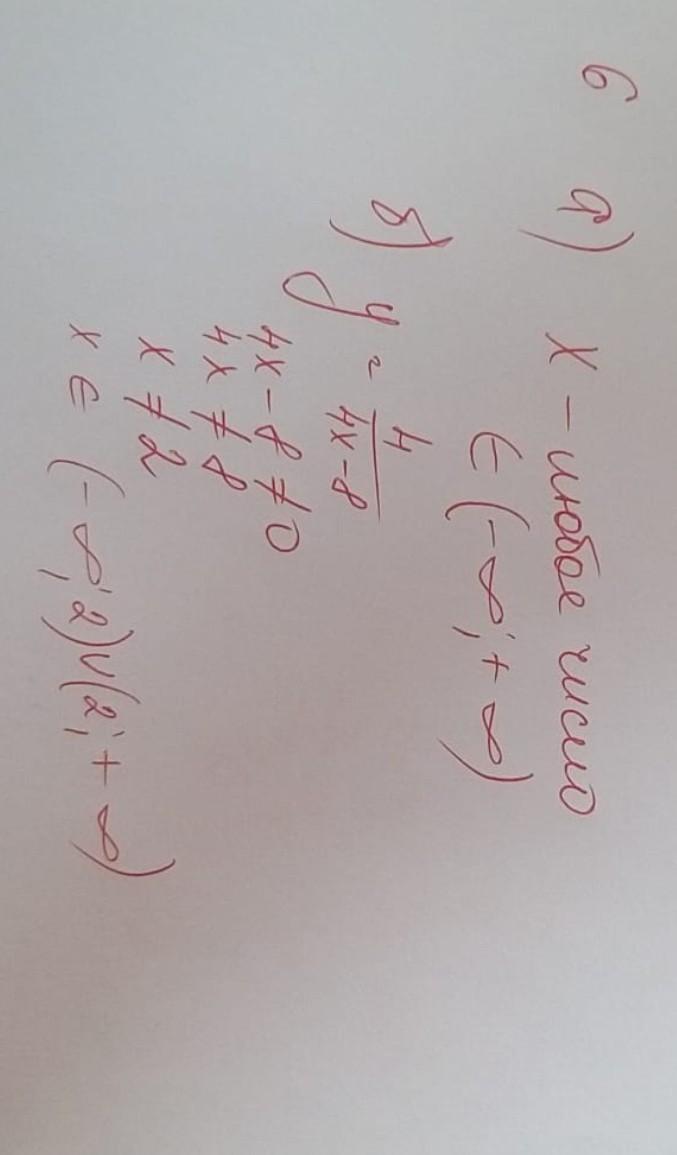 6 а) x - любое число
∈ (-∞; +∞)
б) y = 4/(4x-8)
4x - 8 ≠ 0
4x ≠ 8
x ≠ 2
x ∈ (-∞; 2)∪(2; +∞)